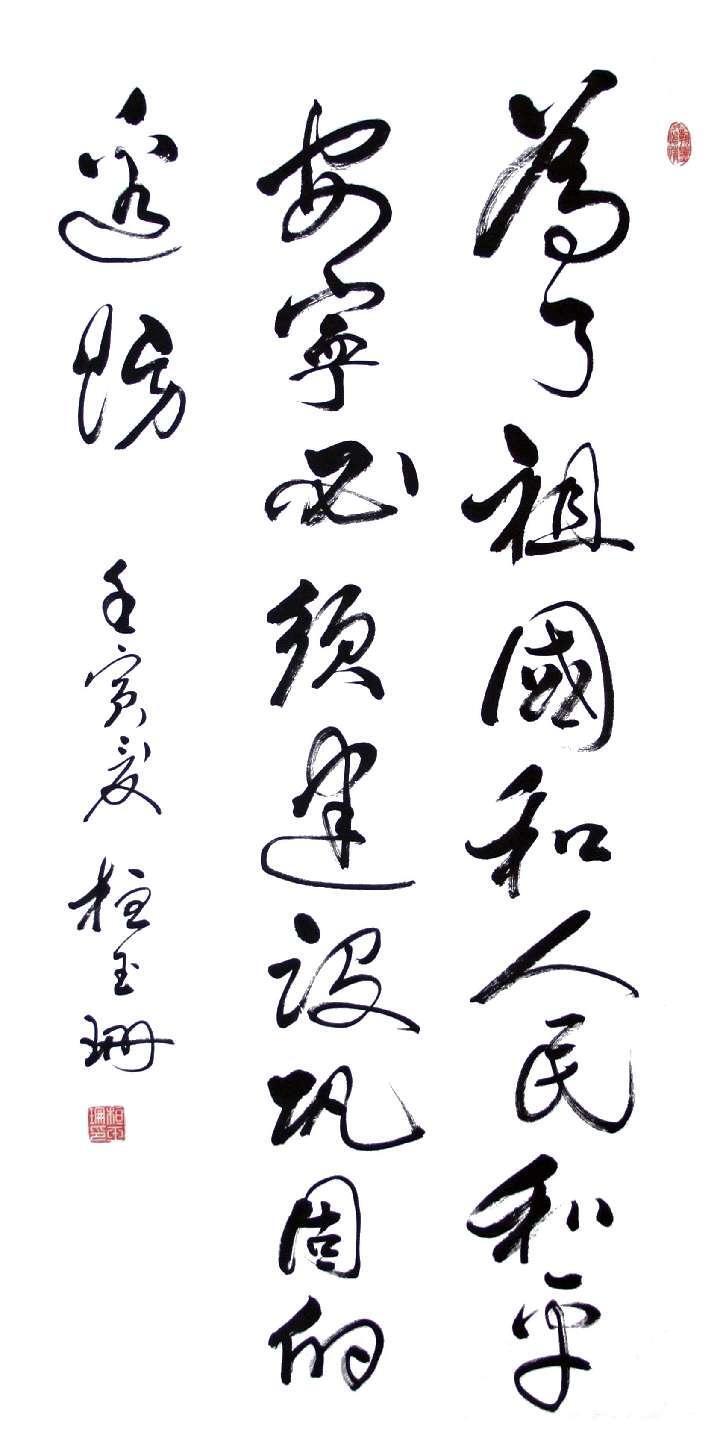 為了祖國和人民和平
安寧必須建設巩固的
邊防
壬寅夏 桂玉珊